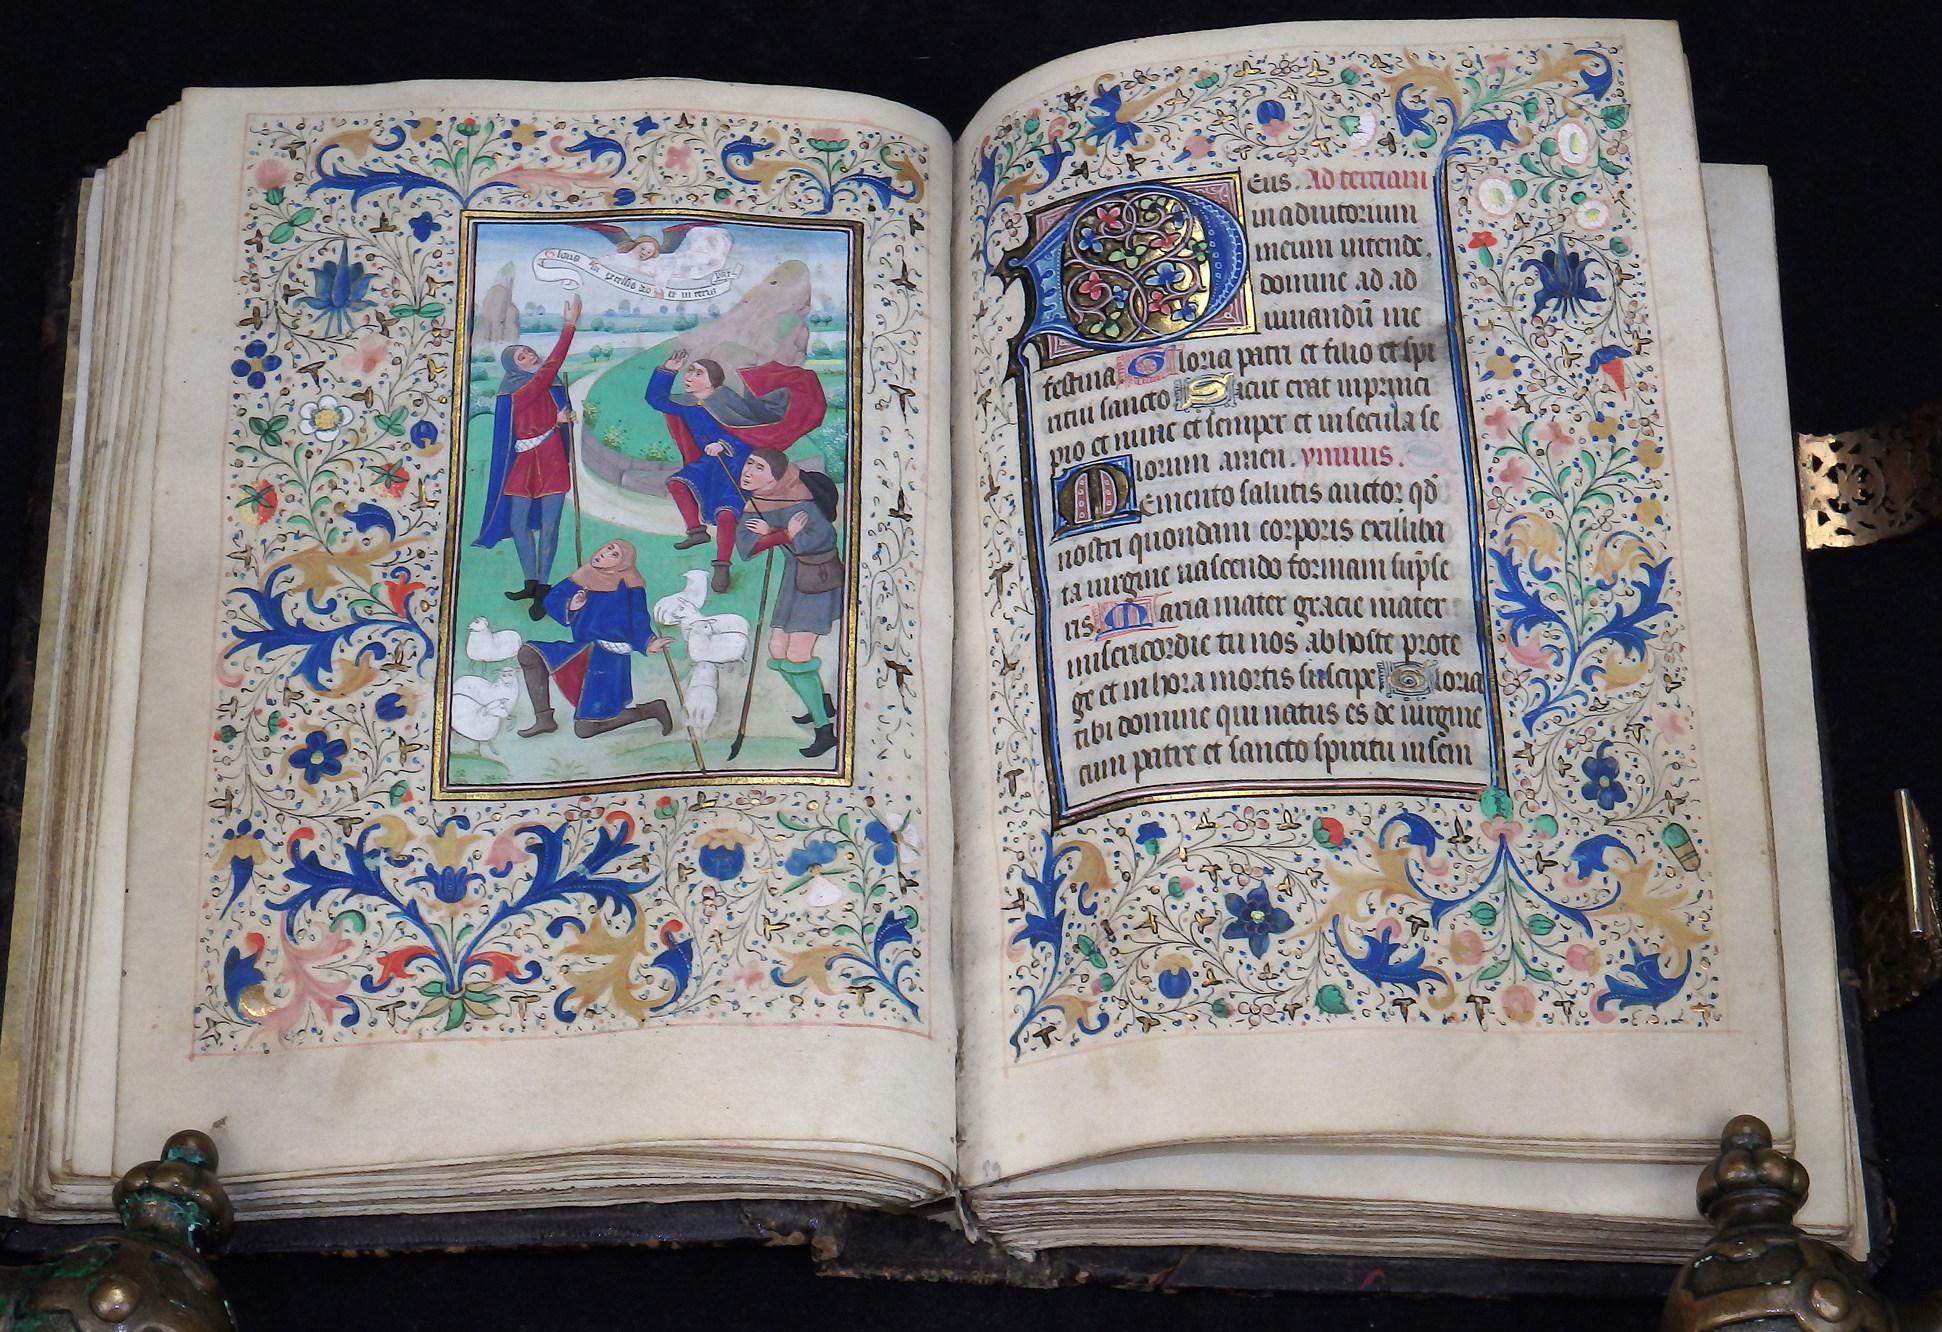 Gloria in excelsis deo et in terra pax
Eus. Ad terciam
in adiutorium
meum intende.
domine ad ad
iuuandū me
festina Gloria patri et filio et spi
ritui sancto Sicut erat in princi
pio et nunc et semper et in secula se
lorum amen. ymnus.
Memento salutis auctor qd̄
nostri quondam corporis ex illiba
ta uirgine nascendo formam sūpse
ris Maria mater gracie mater
misericordie tu nos ab hoste prote
ge et in hora mortis suscipe Gloria
tibi domine qui natus es de uirgine
cum patre et sancto spiritu in sem